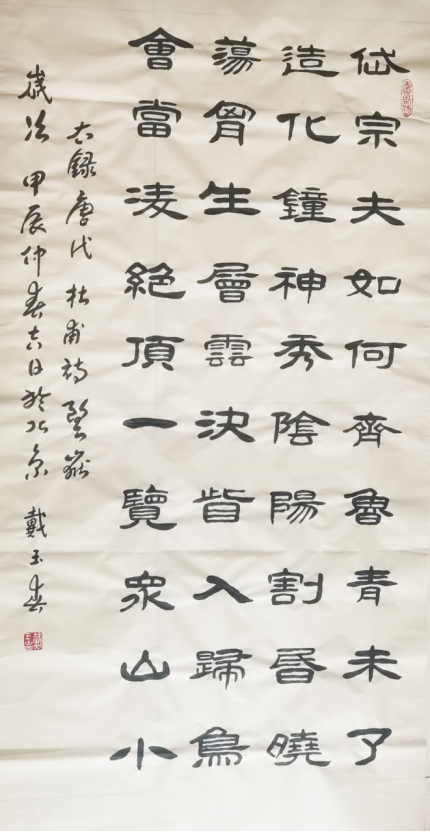 岱宗夫如何齊魯青未了
造化鐘神秀陰陽割昏曉
蕩胷生層雲決眥入歸鳥
會當凌絕頂一覽眾山小
右錄唐代杜甫詩望嶽
歲次甲辰仲春吉日於北京 戴玉春